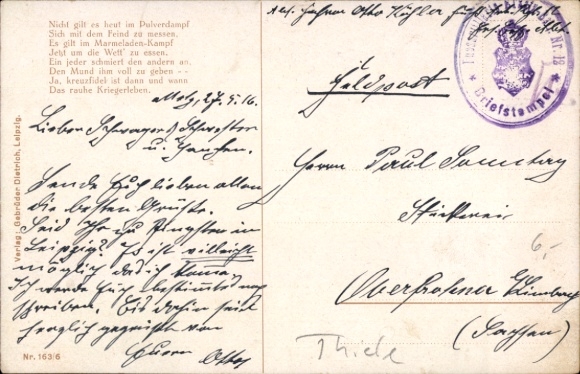 Nicht gilt es heut im Pulverdampf
Sich mit dem Feind zu messen,
Es gilt im Marmeladen-Kampf
Jetzt um die Wett' zu essen.
Ein jeder schmiert den andern an,
Den Mund ihm voll zu geben --
Ja, kreuzfidel ist dann und wann
Das rauhe Kriegerleben.
Metz, 27.5.16.
Lieber Schwager, Schwester
u. Hänschen.
Sende Euch lieben allen
die besten Grüsse.
Seid Ihr zu Pfingsten in
Leipzig? Es ist vielleicht
möglich das ich komme,
Ich werde Euch bestimmtes noch
schreiben. Bis dahin seid
herzlich gegrüsst von
Euern Otto
Verlag: Gebrüder Dietrich, Leipzig.
Nr. 163/6
Abs. Otto
Feldpost
Nr. 12
* Briefstempel *
Herrn Paul Sonntag
Stickerei
6,-
Oberfrohna b/Limbach
(Sachsen)
Thiele